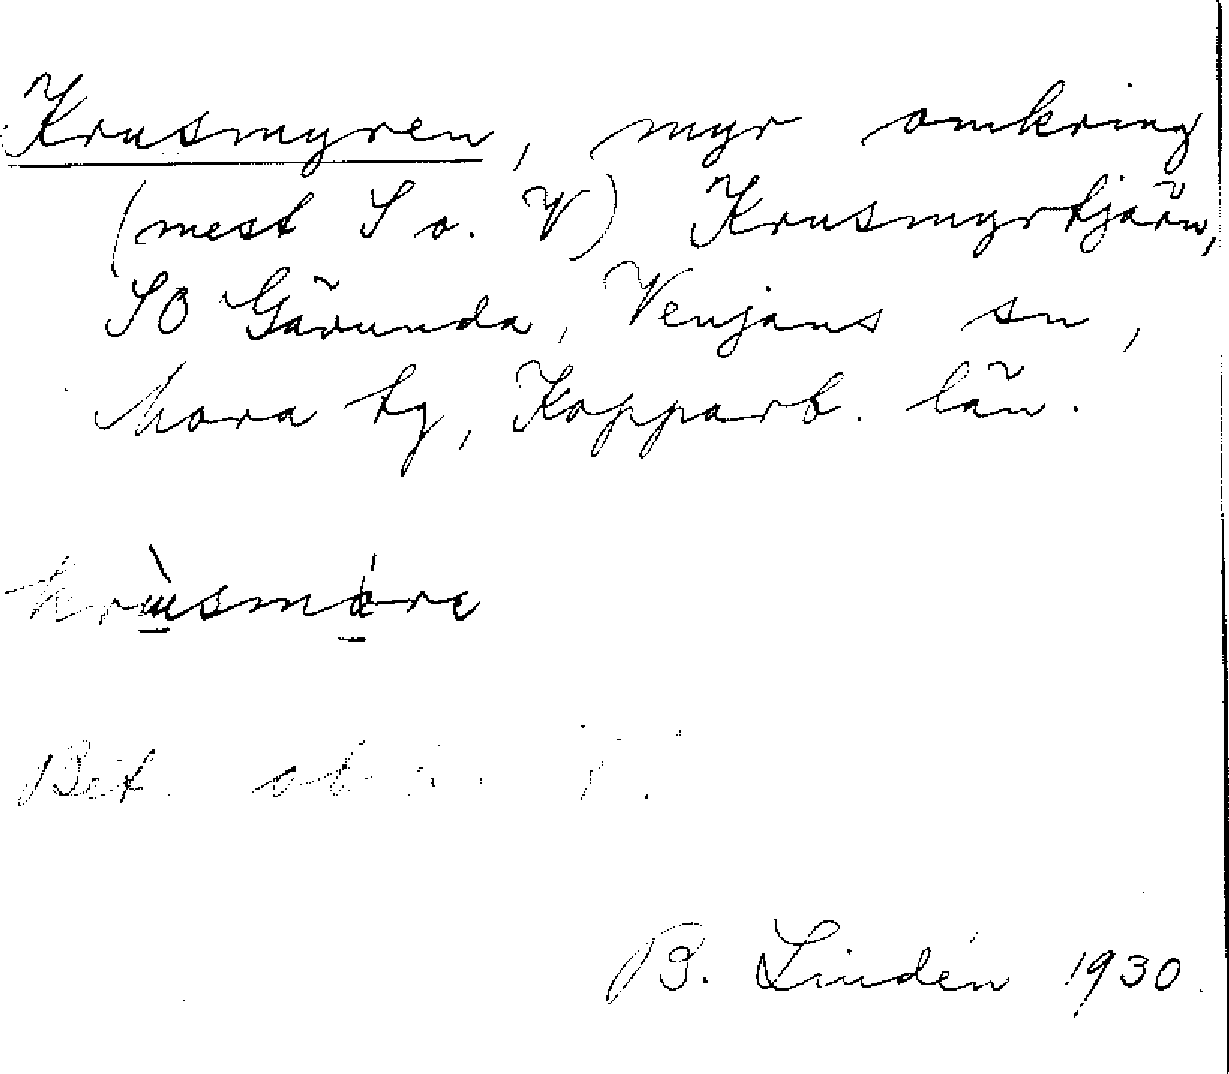 Krusmyren, myr omkring
(mest S o. V) Krusmyrtjärn,
SO Gärunda, Venjans sn,
Mora tg, Kopparb. län.
Bet.
B. Lindén 1930.